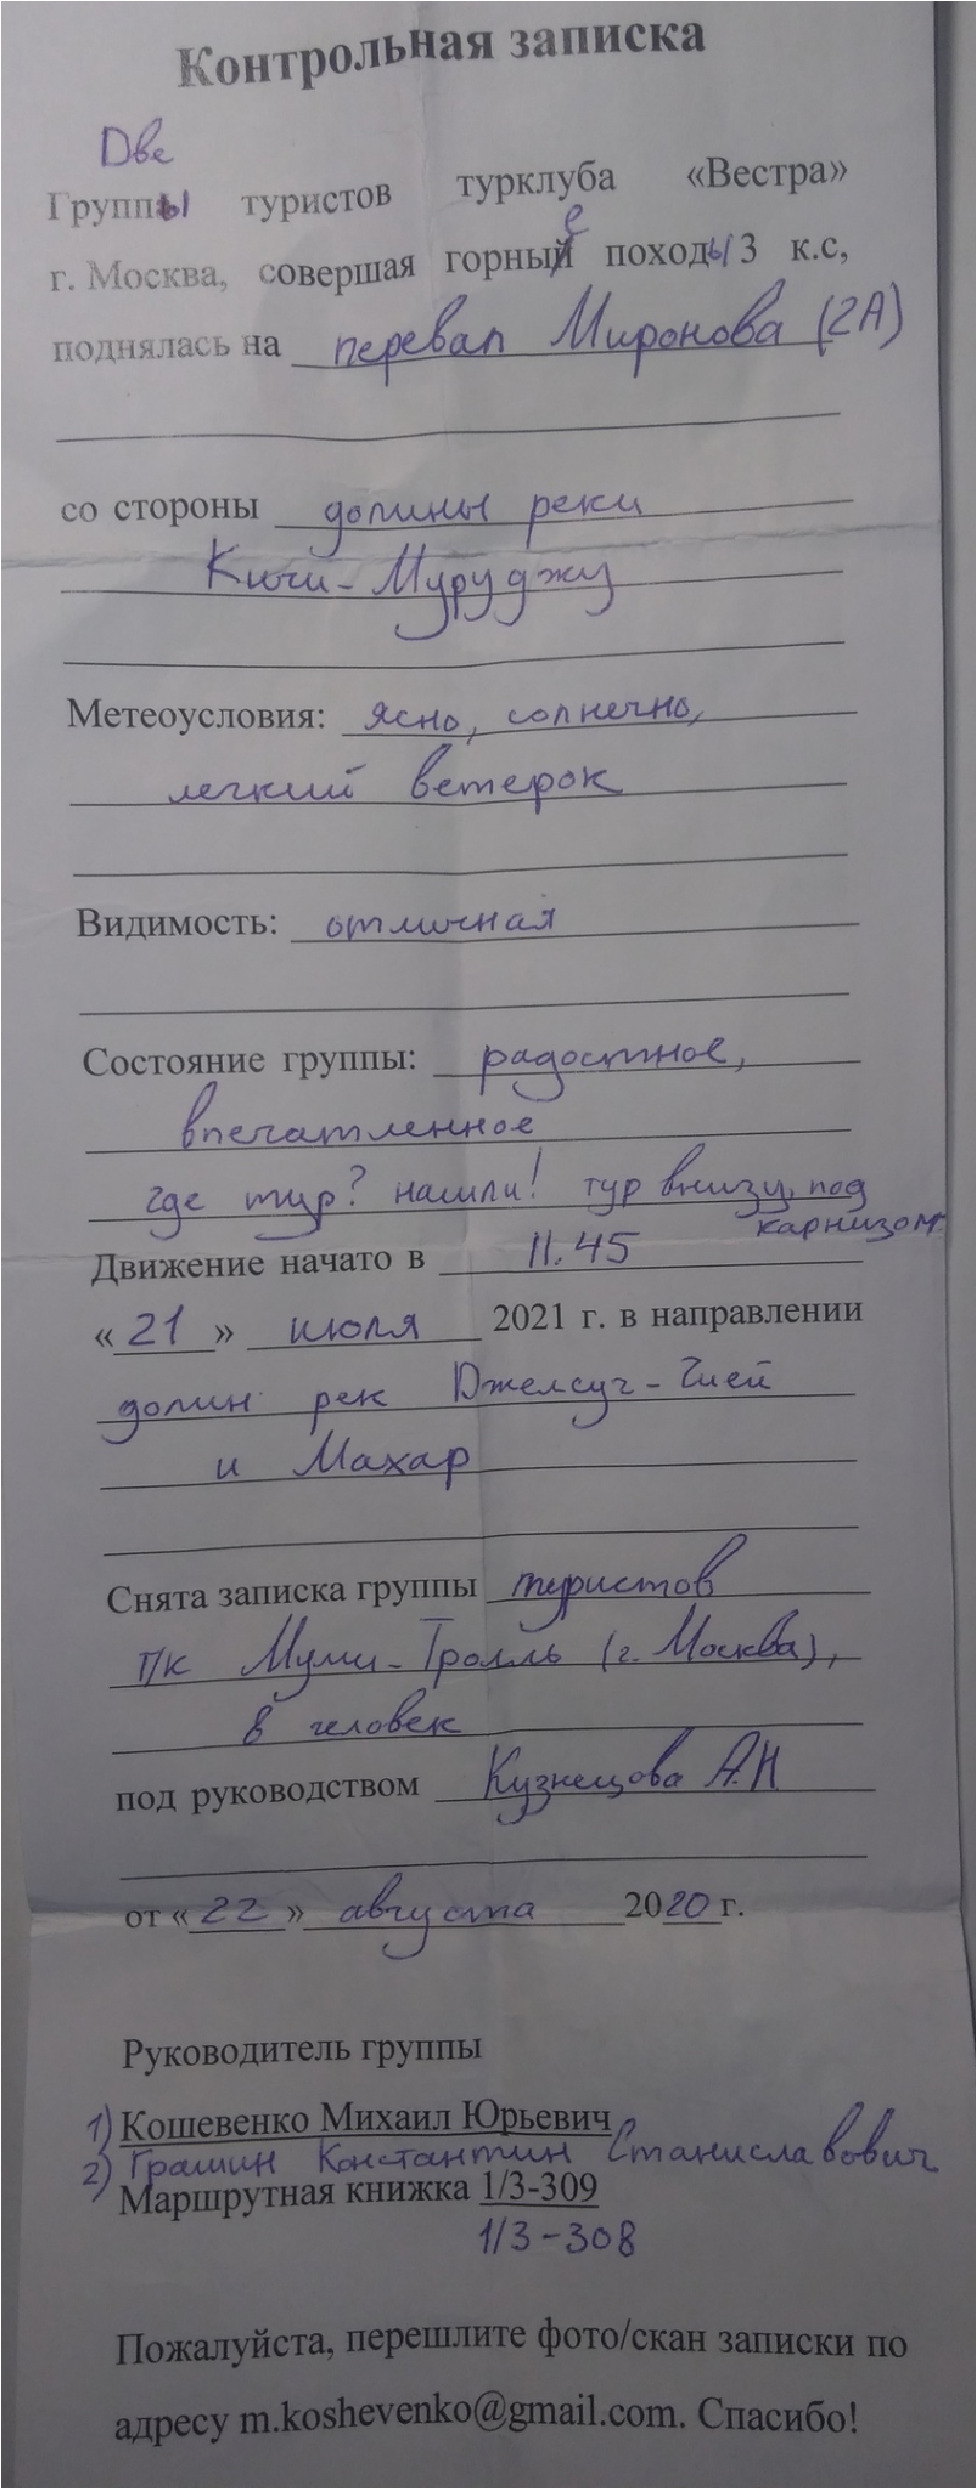 Контрольная записка
Две
Группы туристов турклуба «Вестра»
г. Москва, совершая горные походы 3 к.с,
поднялась на перевал Миронова (2А)
со стороны долины реки
Кичи-Муруджу
Метеоусловия: ясно, солнечно,
легкий ветерок
Видимость: отличная
Состояние группы: радостное,
впечатленное
где тур? нашли! тур внизу, под
карнизом
Движение начато в 11.45
«21» июля 2021 г. в направлении
долин рек Джелсуч-Чией
и Махар
Снята записка группы туристов
т/к Муми-Тролль (г. Москва),
8 человек
под руководством Кузнецова А.Н.
от «22» августа 2020 г.
Руководитель группы
1) Кошевенко Михаил Юрьевич
2) Грашин Константин Станиславович
Маршрутная книжка 1/3-309
1/3-308
Пожалуйста, перешлите фото/скан записки по
адресу m.koshevenko@gmail.com. Спасибо!